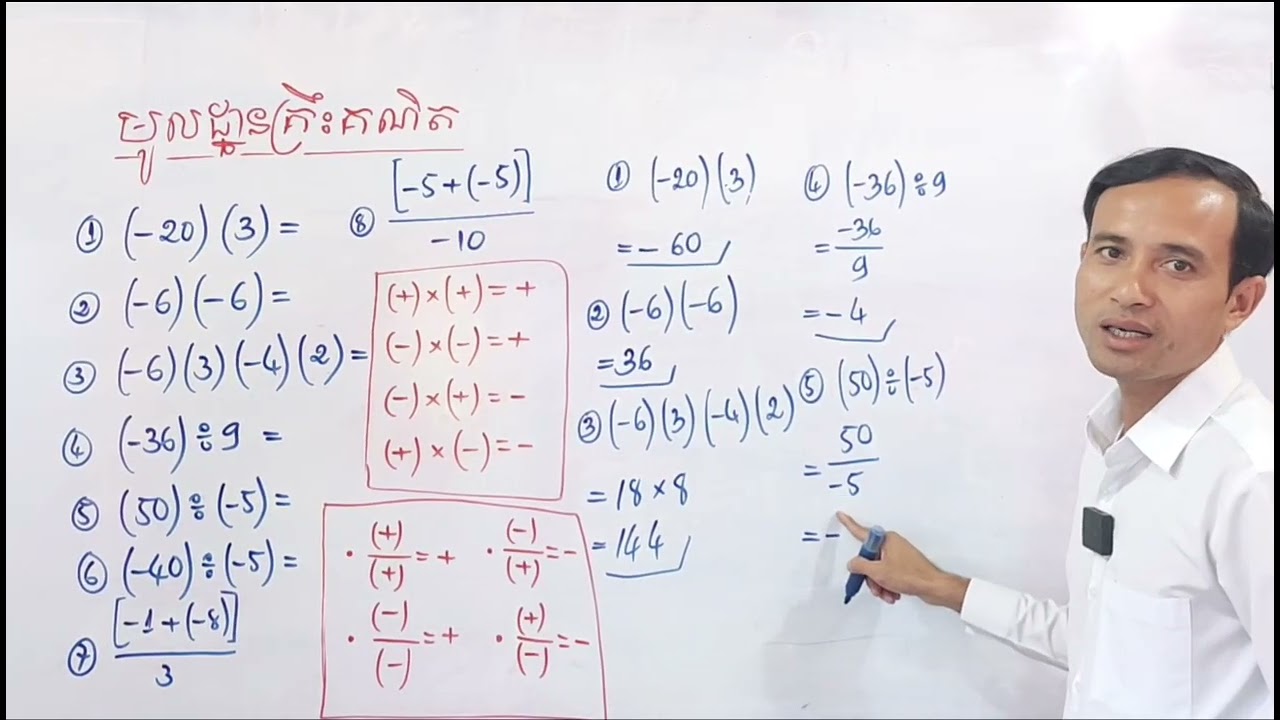 មូលដ្ឋានគ្រឹះគណិត
① (-20)(3)=
② (-6)(-6)=
③ (-6)(3)(-4)(2)=
④ (-36)÷9 =
⑤ (50)÷(-5)=
⑥ (-40)÷(-5)=
⑦ [-1+(-8)]
3
⑧ [-5+(-5)]
-10
(+)×(+)=+
(-)×(-)=+
(-)×(+)=-
(+)×(-)=-
· (+)/(+)=+ · (-)/(+)=-
· (-)/(-)=+ · (+)/(-)=-
① (-20)(3)
=-60
② (-6)(-6)
=36
③ (-6)(3)(-4)(2)
=18×8
=144
④ (-36)÷9
=-36/9
=-4
⑤ (50)÷(-5)
=50/-5
=-